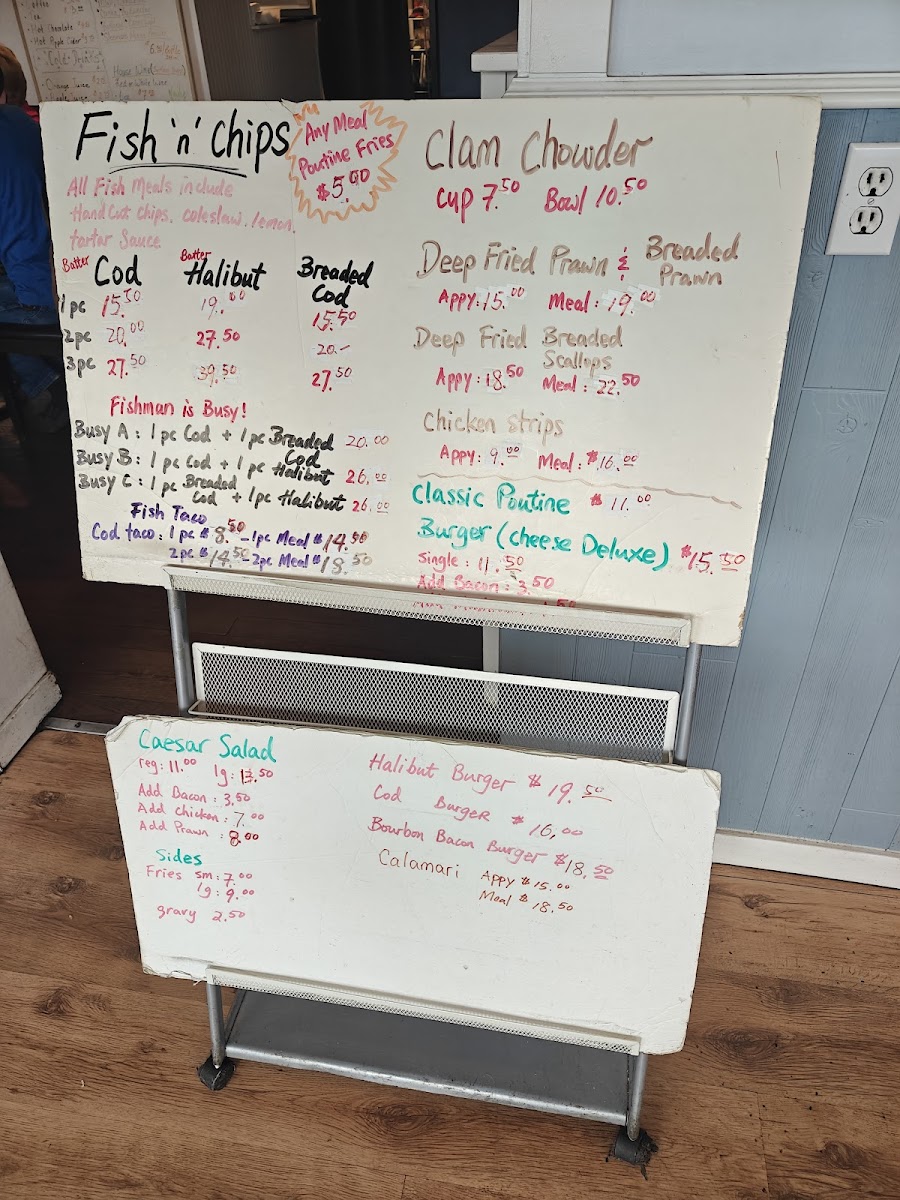 Fish 'n' Chips
Any Meal
Poutine Fries
$5.00
All Fish Meals include
Hand Cut chips, coleslaw, lemon,
tartar Sauce
Batter Cod Batter Halibut Breaded Cod
1pc 15.50 19.00 15.50
2pc 20.00 27.50 20.-
3pc 27.50 39.50 27.50
Fishman is Busy!
Busy A: 1pc Cod + 1pc Breaded Cod 20.00
Busy B: 1pc Cod + 1pc Halibut 26.00
Busy C: 1pc Breaded Cod + 1pc Halibut 26.00
Fish Taco
Cod taco: 1pc $8.50 - 1pc Meal $14.50
2pc $14.50 - 2pc Meal $18.50
Clam Chowder
Cup 7.50 Bowl 10.50
Deep Fried Prawn & Breaded Prawn
Appy: 15.00 Meal: 19.00
Deep Fried Breaded Scallops
Appy: 18.50 Meal: 22.50
Chicken strips
Appy: 9.00 Meal: $16.00
Classic Poutine $11.00
Burger (cheese Deluxe) $15.50
Single: 11.50
Add Bacon: 3.50
Caesar Salad
reg: 11.00 lg: 13.50
Add Bacon: 3.50
Add Chicken: 7.00
Add Prawn: 8.00
Sides
Fries sm: 7.00
lg: 9.00
gravy 2.50
Halibut Burger $19.50
Cod Burger $16.00
Bourbon Bacon Burger $18.50
Calamari Appy $15.00
Meal $18.50
Hot Chocolate
Hot Apple Cider
Cold Drinks
House Wine